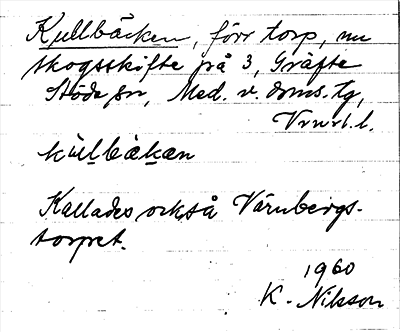 Kullbäcken, förr torp, nu
skogsskifte på 3, Gräfte
Stöde sn, Med. v. dms. tg,
Vnrl. l.
kùl̲l̲bäkæn
Kallades också Värnbergs-
torpet.
1960
K. Nilsson